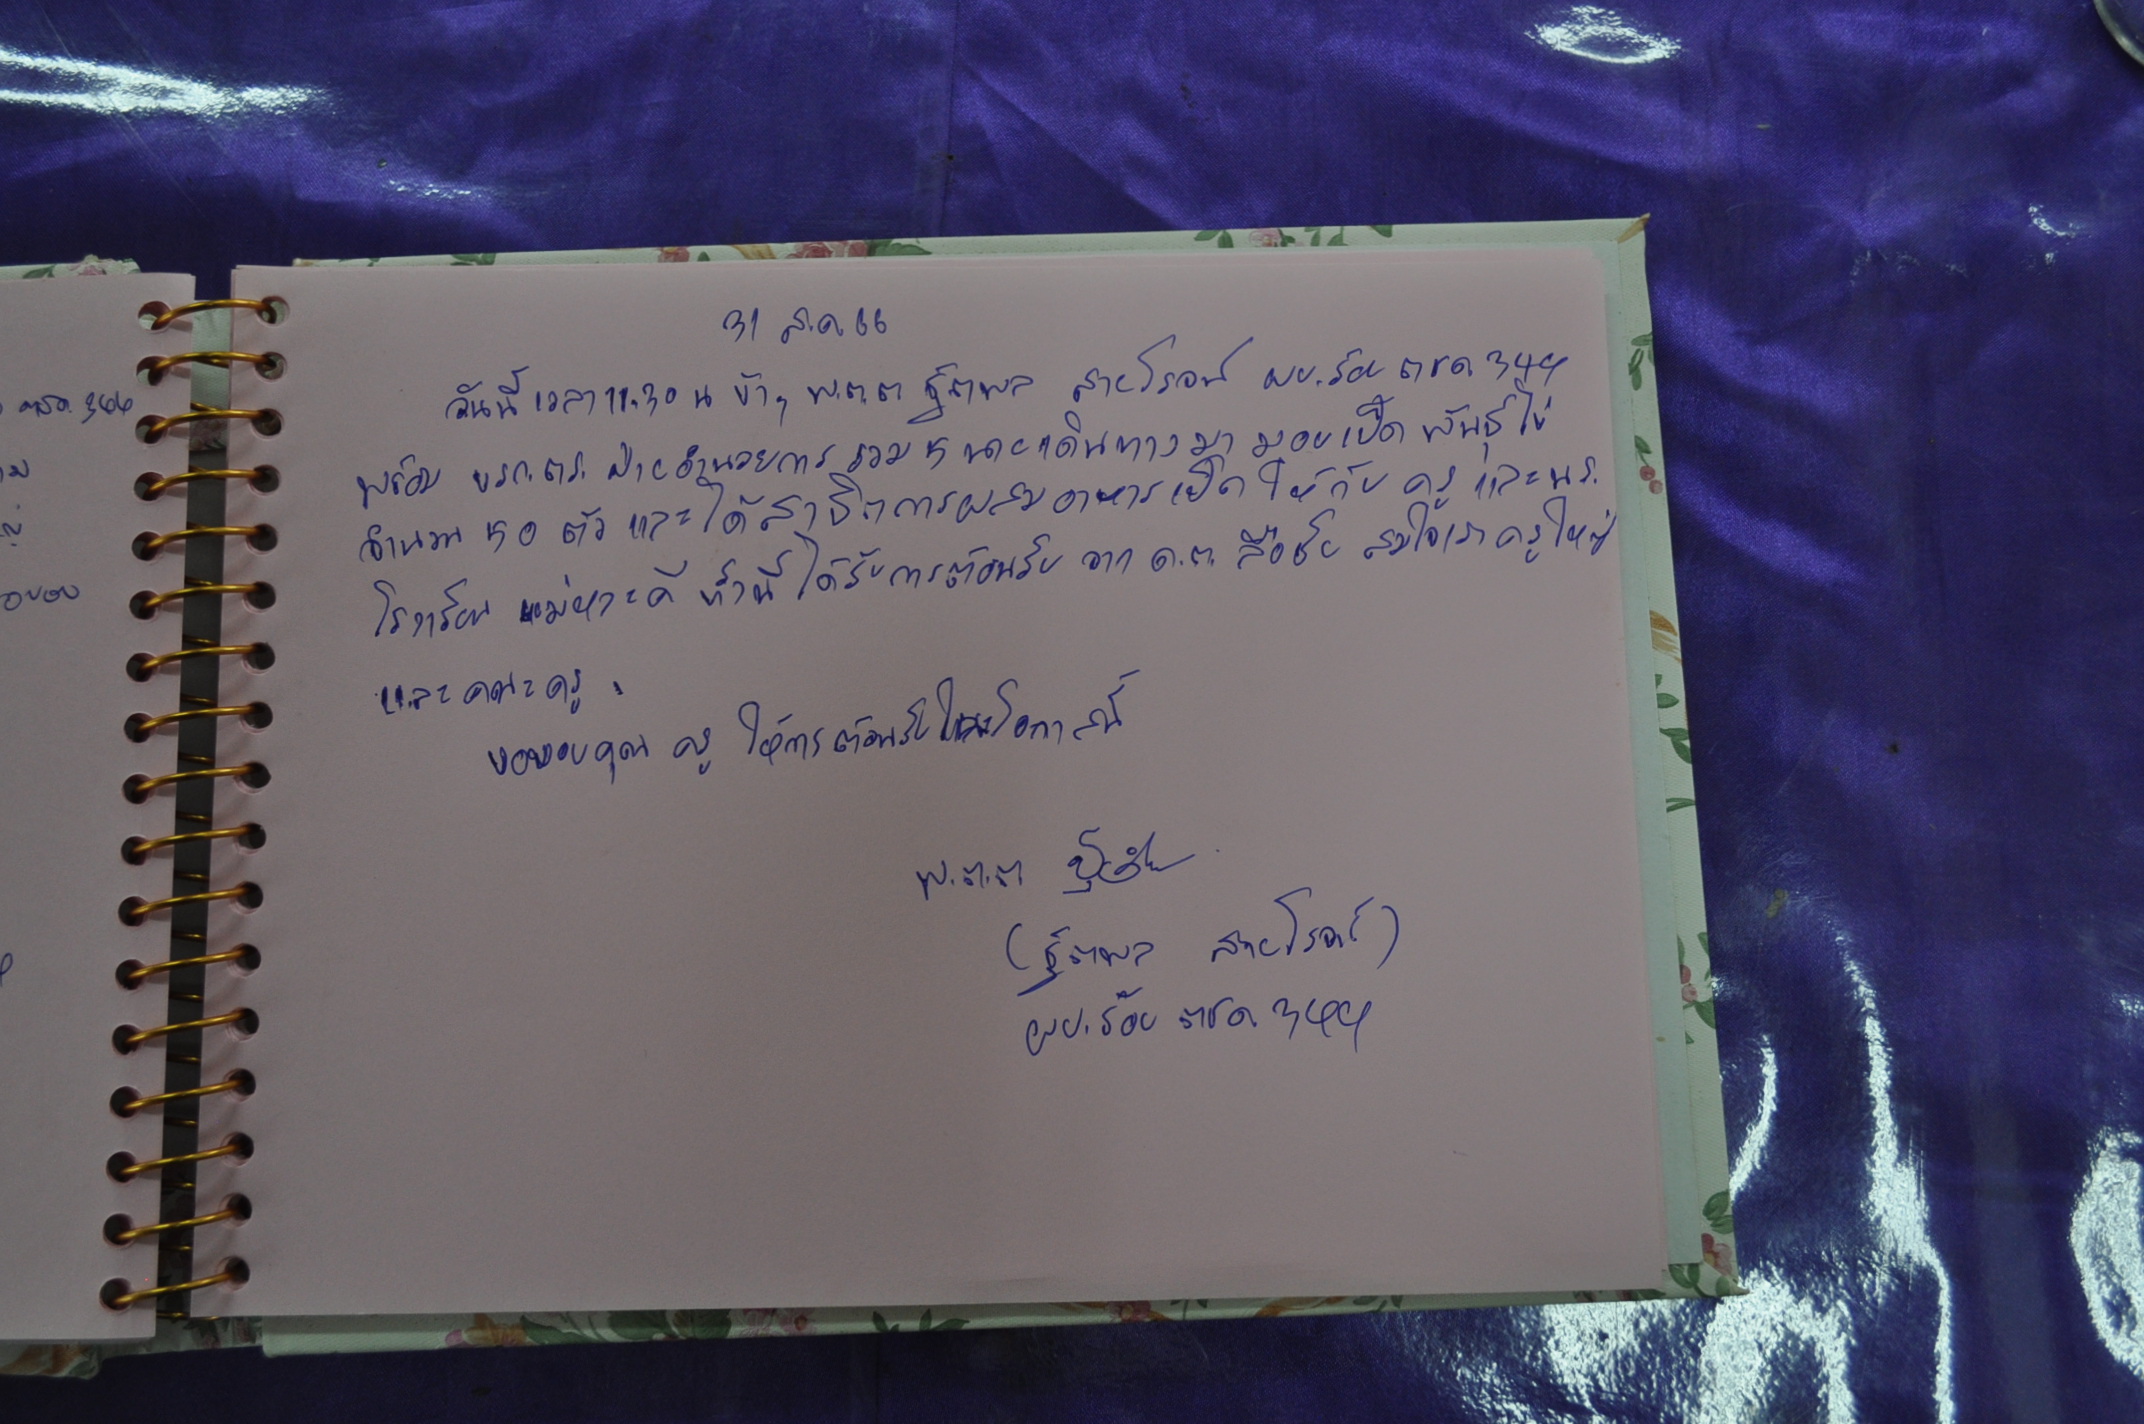 31 ส.ค. 66
วันนี้ เวลา 11.30 น ข้าฯ พ.ต.ต ฐิตพล สายโรจน์ ผบ.ร้อย ตชด 344
พร้อม ขรก.ตร. ฝ่ายอำนวยการ รวม 5 นาย เดินทางมา มอบเป็ด พันธุ์ไข่
จำนวน 50 ตัว และได้สาธิตการผสมอาหารเป็ด ให้กับ ครู และ นร.
โรงเรียน แม่หาะคี ทั้งนี้ ได้รับการต้อนรับ จาก ด.ต. ลือชัย สมใจเรา ครูใหญ่
และคณะครู
ขอขอบคุณ ครู ให้การต้อนรับในโอกาสนี้
พ.ต.ต
(ฐิตพล สายโรจน์)
ผบ.ร้อย ตชด. 344
ตชด. 344